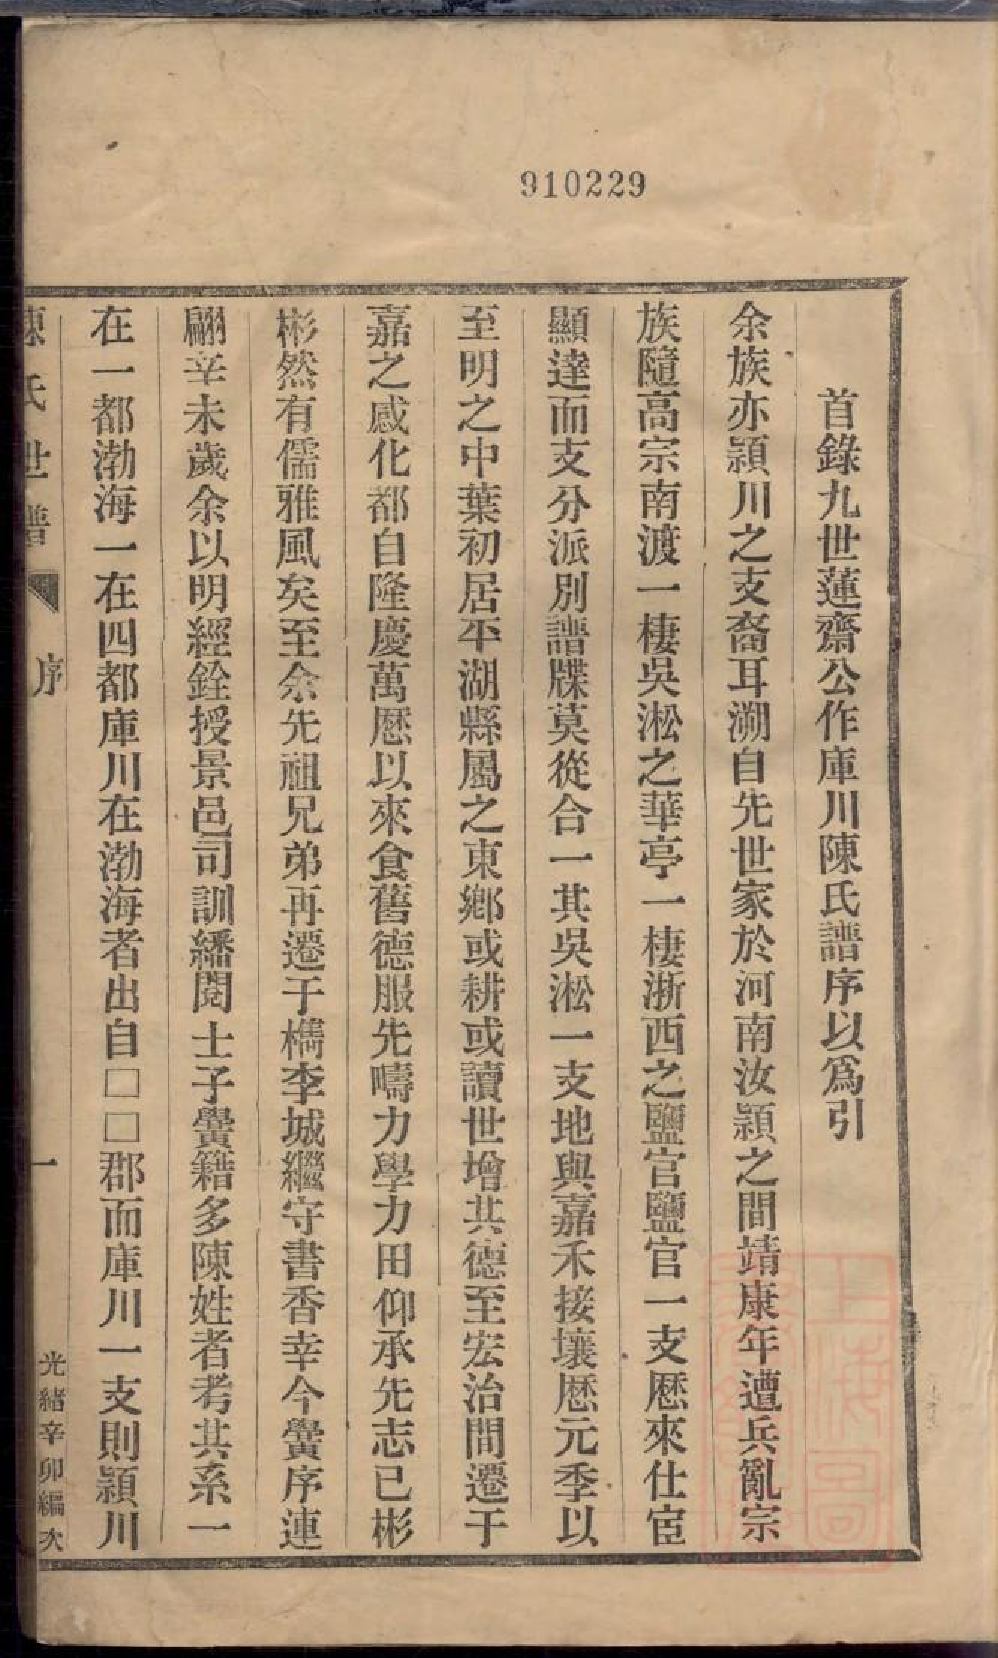 910229
首錄九世蓮齋公作庫川陳氏譜序以爲引
余族亦潁川之支裔耳溯自先世家於河南汝潁之間靖康年遭兵亂宗
族隨高宗南渡一棲吳淞之華亭一棲浙西之鹽官鹽官一支厯來仕宦
顯達而支分派別譜牒莫從合一其吳淞一支地與嘉禾接壤厯元季以
至明之中葉初居平湖縣屬之東鄉或耕或讀世增其德至宏治間遷于
嘉之感化都自隆慶萬厯以來食舊德服先疇力學力田仰承先志已彬
彬然有儒雅風矣至余先祖兄弟再遷于檇李城繼守書香幸今黌序連
翩辛未歲余以明經銓授景邑司訓繙閱士子黌籍多陳姓者考其系一
在一都渤海一在四都庫川在渤海者出自□□郡而庫川一支則潁川
陳氏世譜
序
一
光緒辛卯編次
上海圖